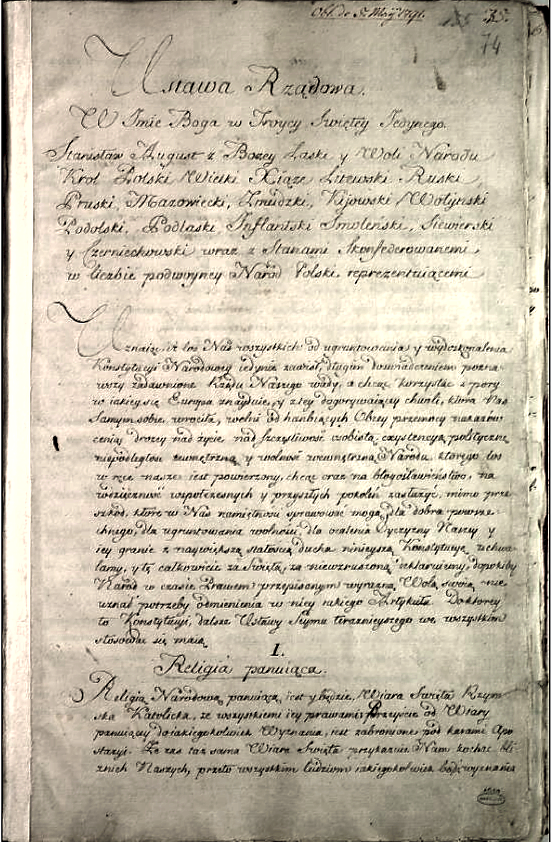 Obl. de 5. Maij 1791.
135
35.
74
Ustawa Rządowa.
W Imie Boga w Troycy Swiętey Jedynego.
Stanisław August z Bożey Łaski y Woli Narodu
Krol Polski Wielki Xiąże Litewski Ruski
Pruski, Mazowiecki, Zmudzki, Kijowski Wołyński
Podolski, Podlaski Inflantski Smoleński, Siewierski
y Czerniechowski wraz z Stanami Skonfederowanemi
w liczbie podwoyney Naród Polski reprezentuiącemi
Uznaiąc, iż los Nas wszystkich od ugruntowania y wydoskonalenia
Konstytucyi Narodowey iedynie zawisł, długim doswiadczeniem pozna-
wszy zadawnione Rządu Naszego wady, a chcąc korzystać z pory
w iakiey się Europa znayduie, y z tey dogorywaiącey chwili, która Nas
Samym sobie wrociła, wolni od hańbiących Obcey przemocy nakazów
ceniąc drożey nad życie, nad szczęśliwość osobistą, exystencyą polityczną
niepodległość zewnętrzną y wolność wewnętrzną Narodu, którego los
w ręce nasze iest powierzony, chcąc oraz na błogosławieństwo, na
wdzięczność współczesnych y przyszłych pokoleń zasłużyć, mimo prze-
szkód, które w Nas namiętności sprawować mogą, dla dobra powsze-
chnego, dla ugruntowania wolności, dla ocalenia Oyczyzny Naszey y
iey granic z naywiększą stałością ducha ninieyszą Konstytucyę uchwa-
lamy, y tę całkowicie za Swiętą, za niewzruszoną deklaruiemy, dopókiby
Naród w czasie Prawem przepisanym wyraźną Wolą swoią nie
uznał potrzeby odmienienia w niey iakiego Artykułu. Do którey
to Konstytucyi, dalsze Ustawy Seymu teraźnieyszego we wszystkim
stosować się maią.
I.
Religia panuiąca.
Religią Narodową panuiącą iest y będzie Wiara Swięta Rzym-
ska Katolicka, ze wszystkiemi iey prawami; Przeyście od Wiary
panuiącey do iakiegokolwiek Wyznania, iest zabronione pod karami Apo-
stazyi. Że zaś taż sama Wiara Swięta przykazuie Nam kochać bli-
źnich Naszych, przeto wszystkim ludziom iakiegokolwiek bądź wyznania